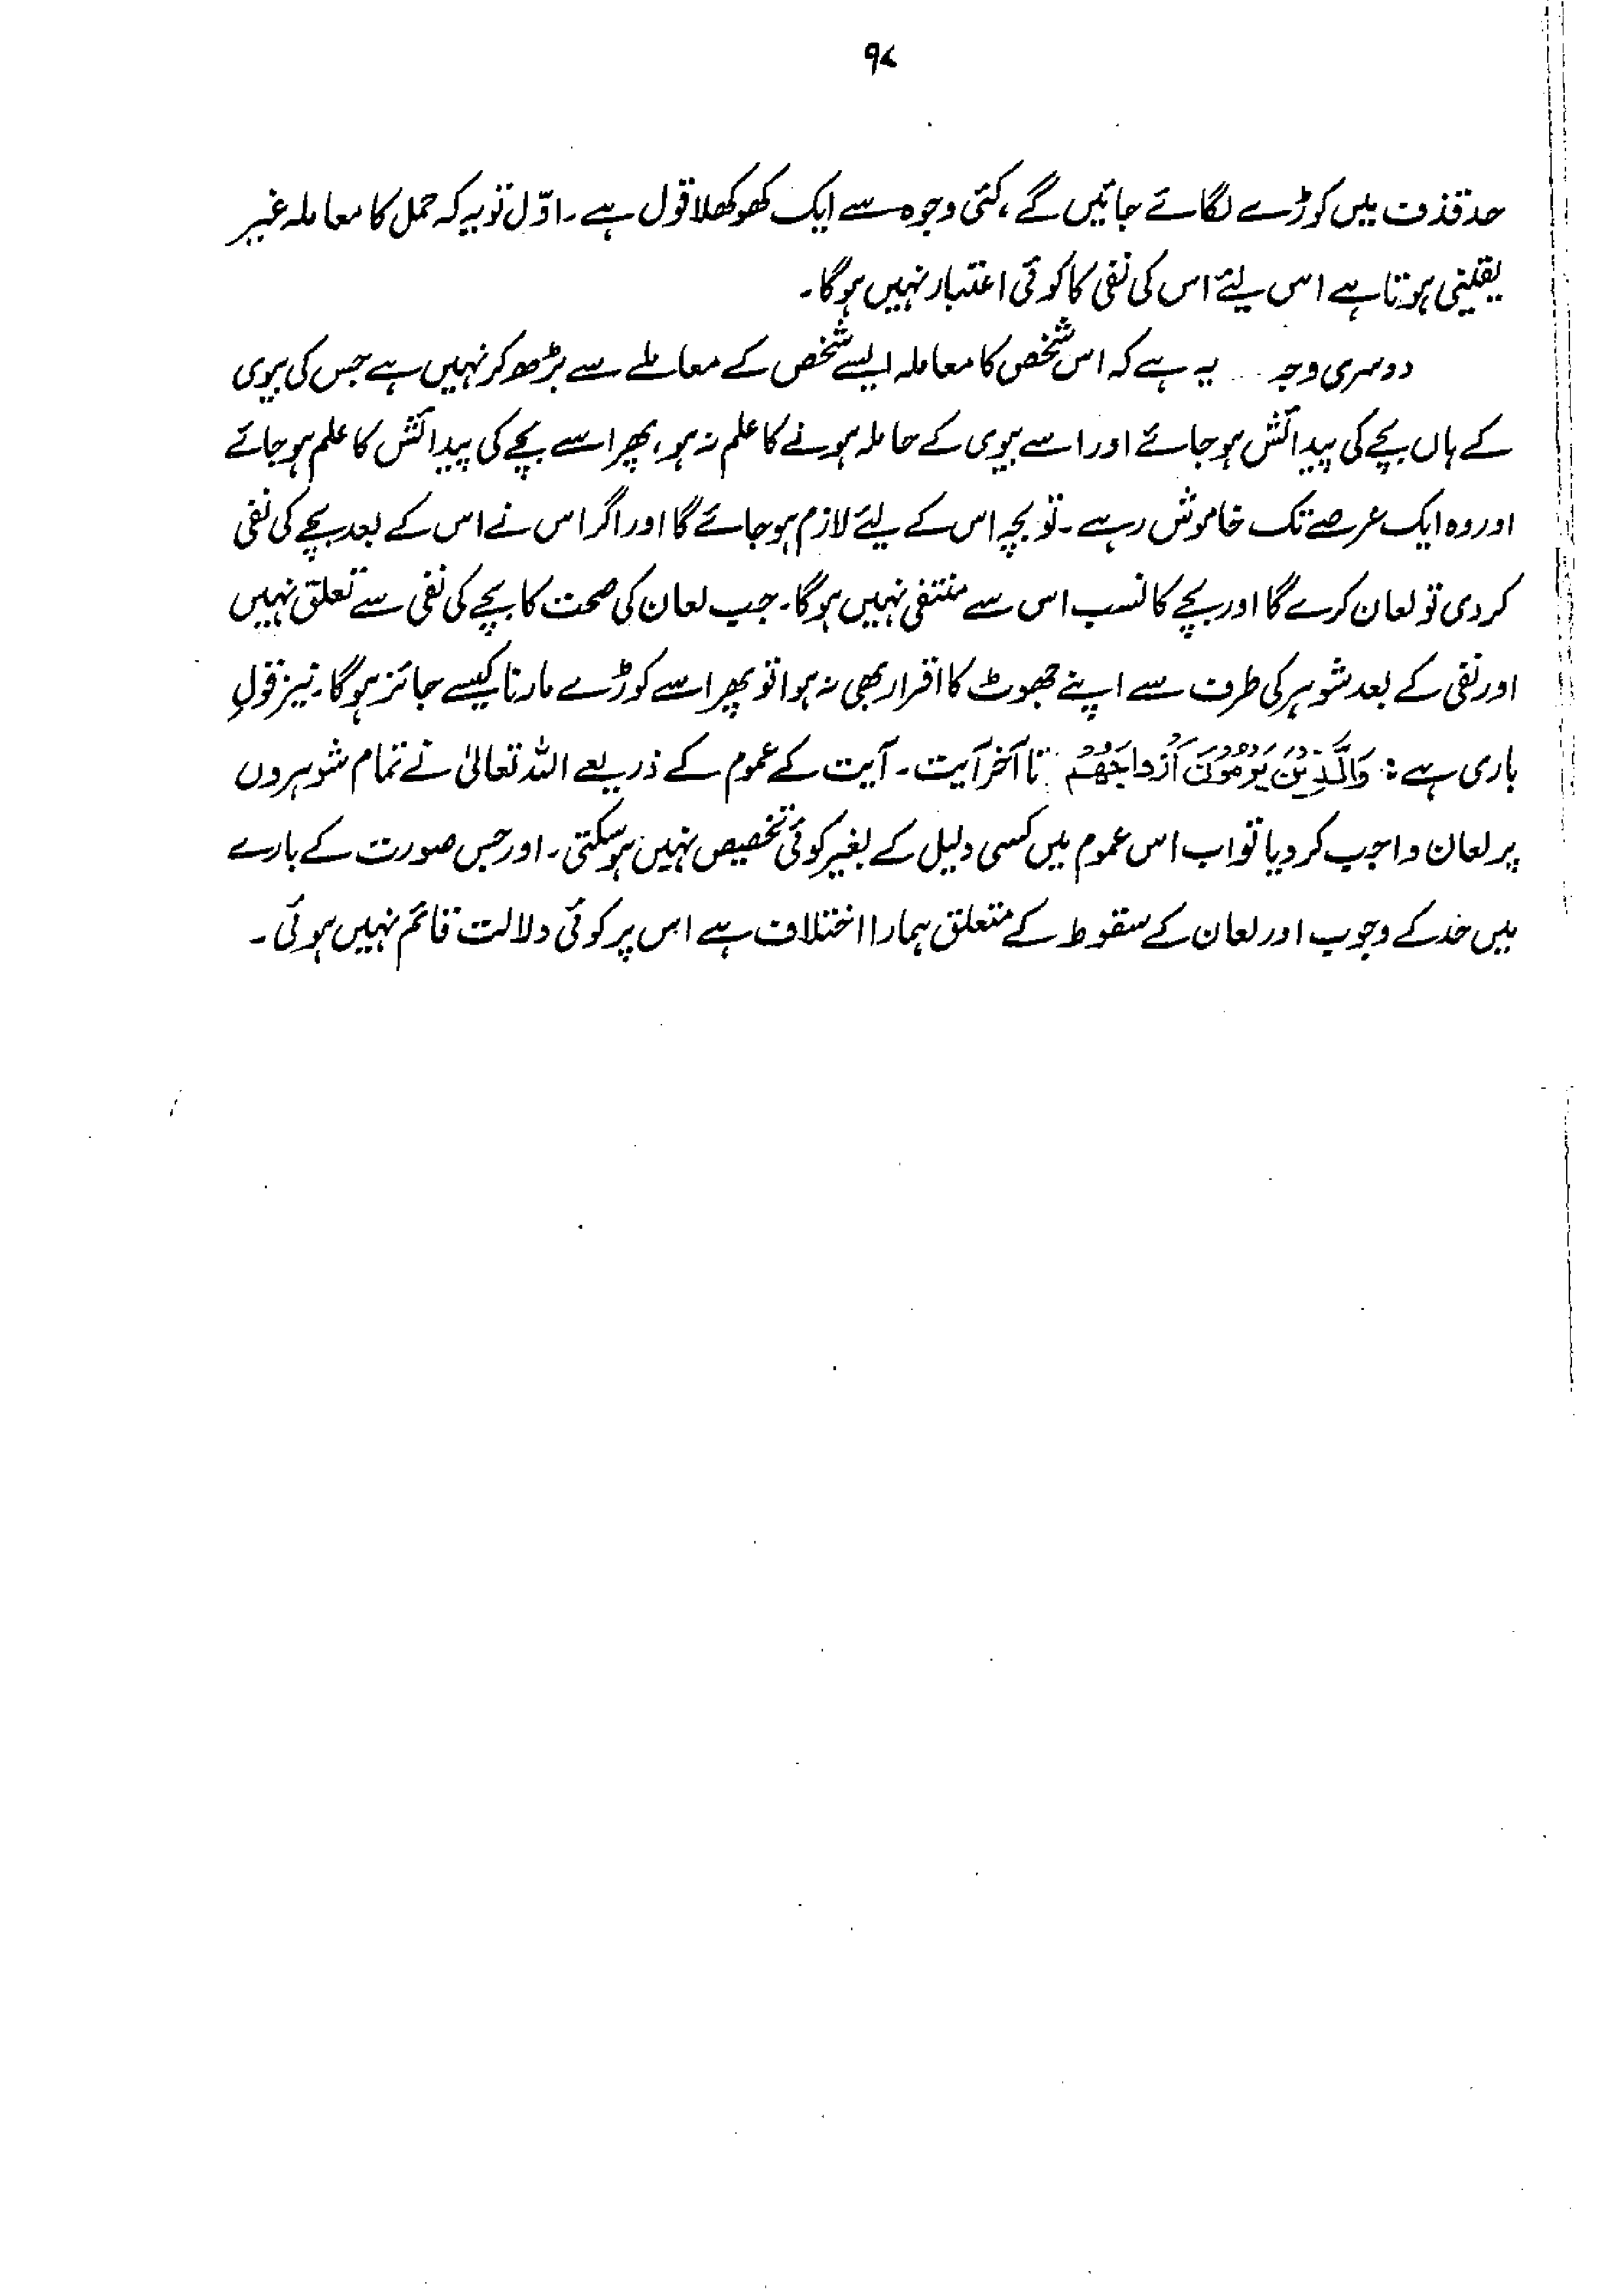 ۹۷
حد قذف میں کوڑے لگائے جائیں گے، کئی وجوہ سے ایک کھوکھلا قول ہے۔ اوّل تو یہ کہ حمل کا معاملہ غیر
یقینی ہوتا ہے اس لئے اس کی نفی کا کوئی اعتبار نہیں ہوگا۔
دوسری وجہ یہ ہے کہ اس شخص کا معاملہ ایسے شخص کے معاملے سے بڑھ کر نہیں ہے جس کی بیوی
کے ہاں بچے کی پیدائش ہو جائے اور اسے بیوی کے حاملہ ہونے کا علم نہ ہو، پھر اسے بچے کی پیدائش کا علم ہو جائے
اور وہ ایک عرصے تک خاموش رہے۔ تو بچہ اس کے لیئے لازم ہو جائے گا اور اگر اس نے اس کے بعد بچے کی نفی
کر دی تو لعان کرے گا اور بچے کا نسب اس سے منتفی نہیں ہوگا۔ جب لعان کی صحت کا بچے کی نفی سے تعلق نہیں
اور نفی کے بعد شوہر کی طرف سے اپنے جھوٹ کا اقرار بھی نہ ہوا تو پھر اسے کوڑے مارنا کیسے جائز ہوگا۔ نیز قولِ
باری ہے: وَالَّذِيْنَ يَرْمُوْنَ اَزْوَاجَهُمْ تا آخر آیت۔ آیت کے عموم کے ذریعے اللہ تعالیٰ نے تمام شوہروں
پر لعان واجب کر دیا تو اب اس عموم میں کسی دلیل کے بغیر کوئی تخصیص نہیں ہو سکتی۔ اور جس صورت کے بارے
میں حد کے وجوب اور لعان کے سقوط کے متعلق ہمارا اختلاف ہے اس پر کوئی دلالت قائم نہیں ہوئی۔